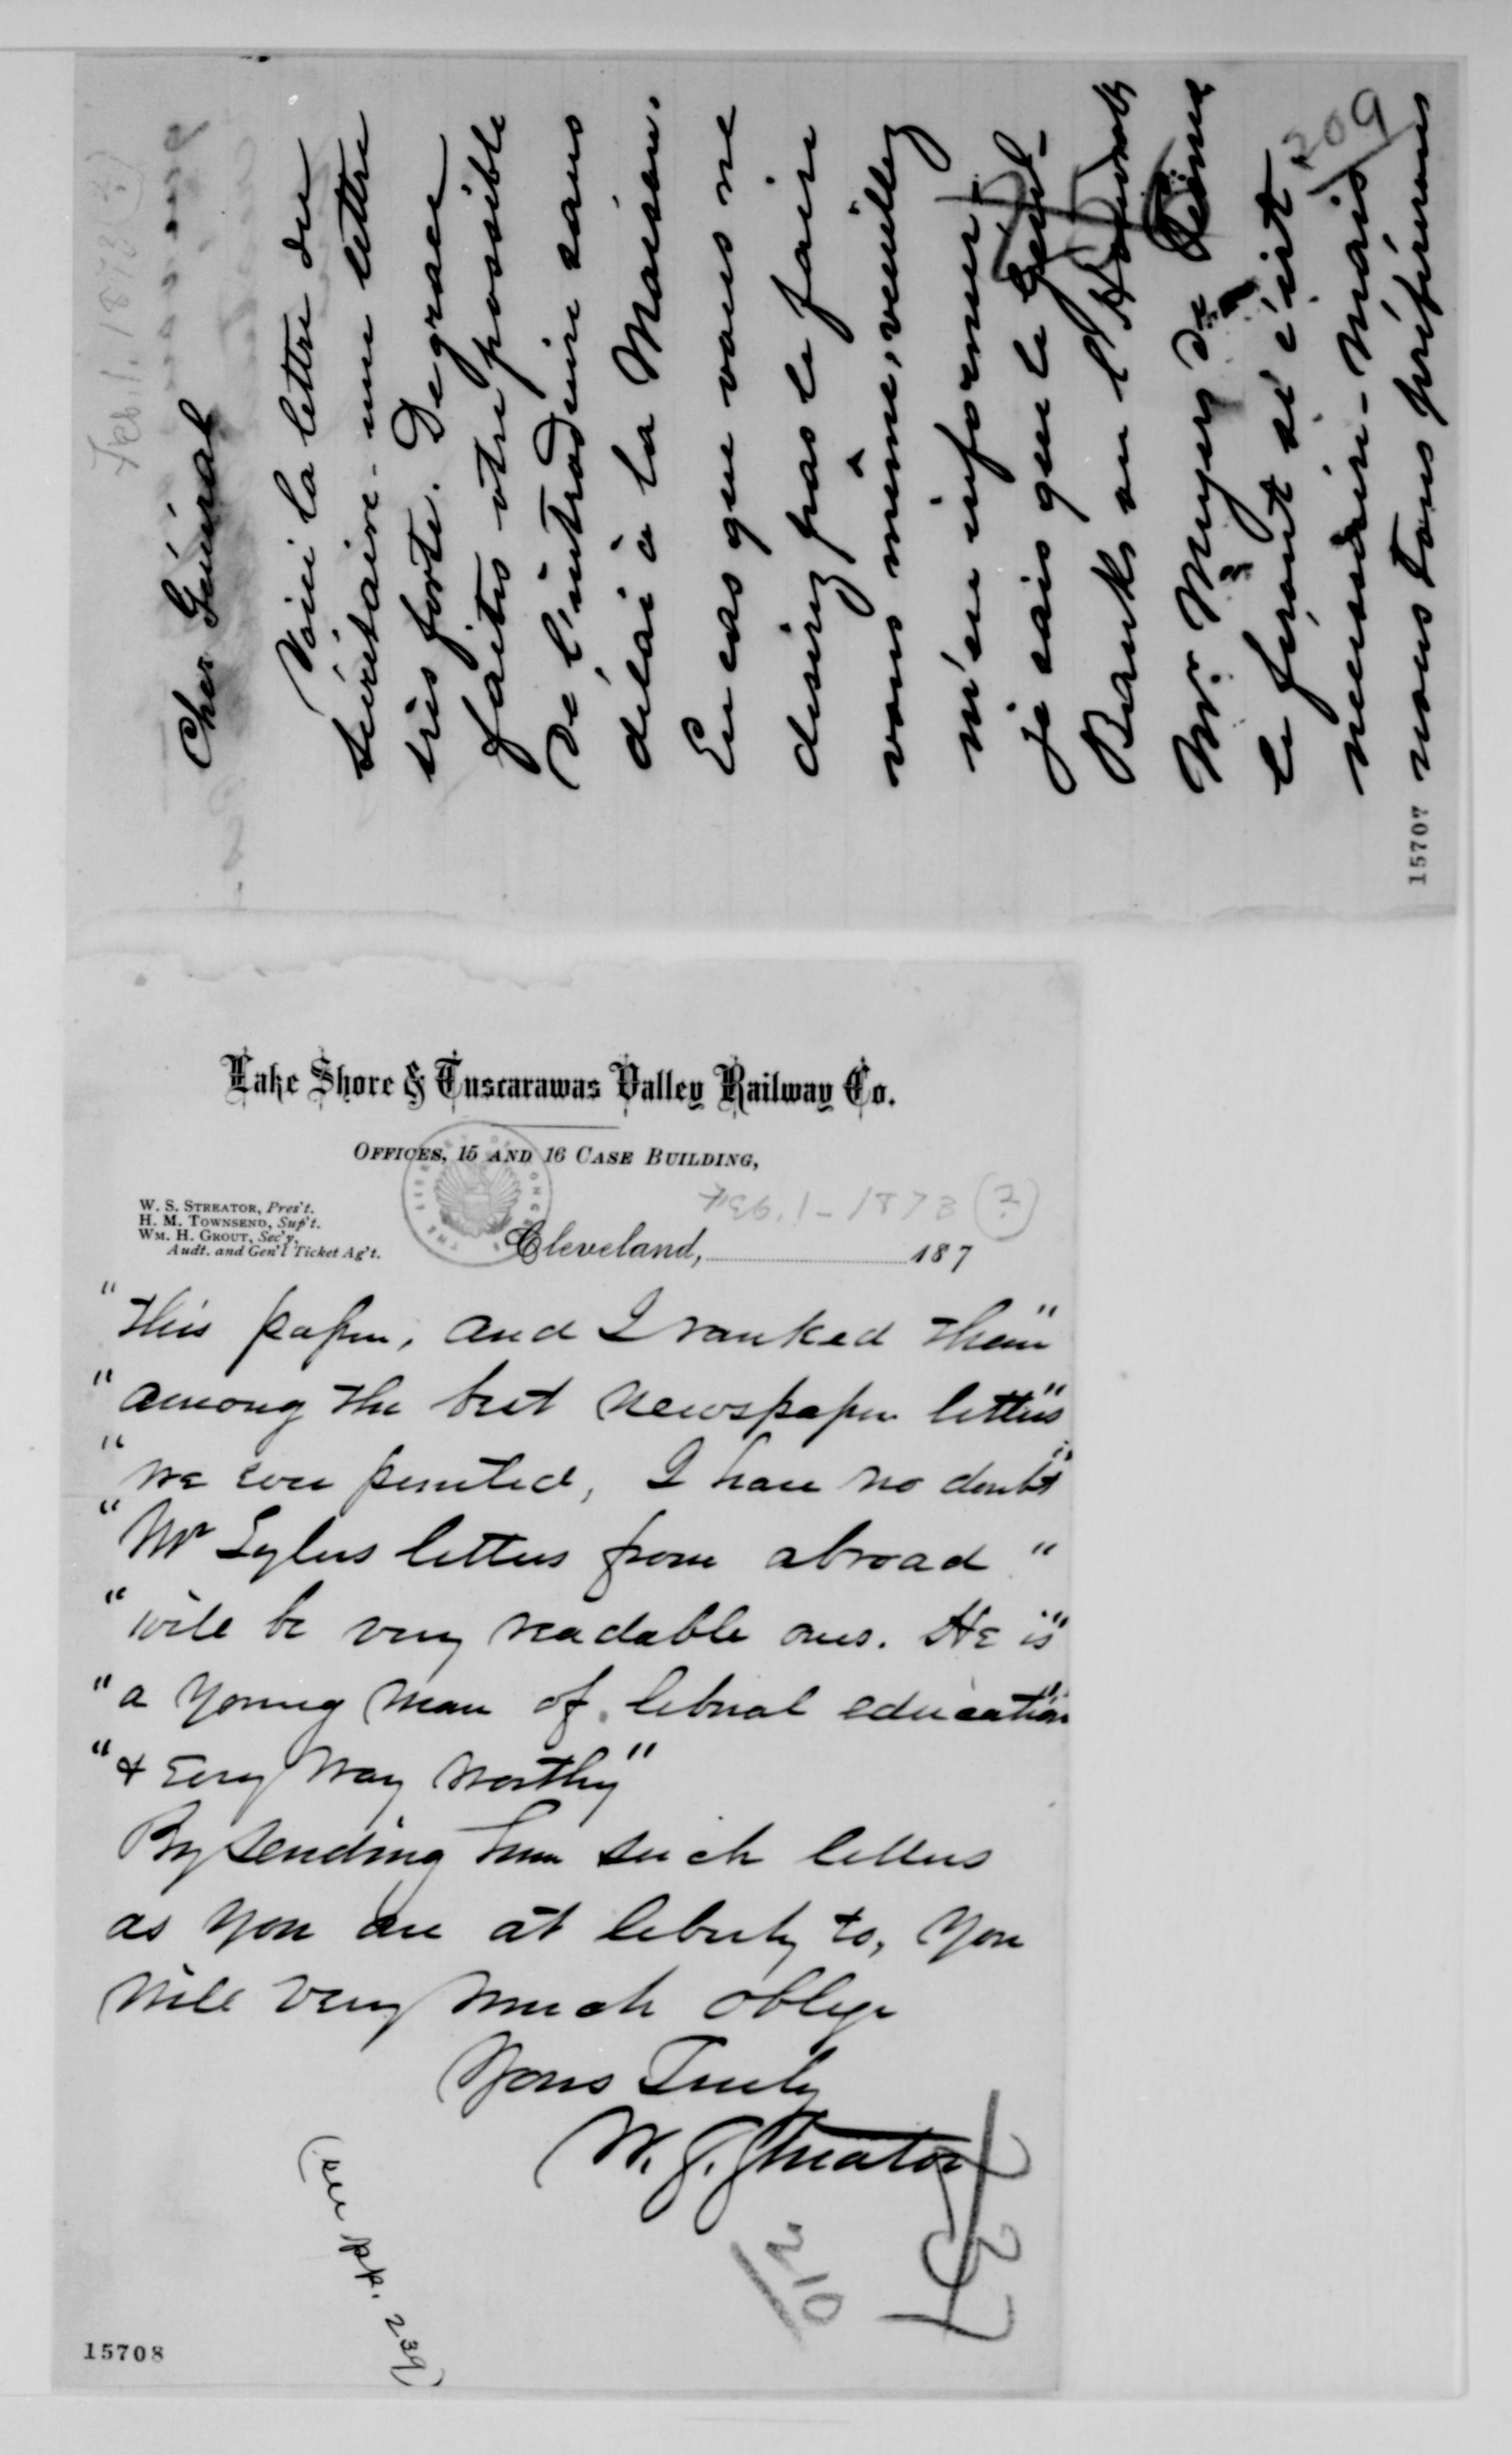 Feb. 1, 1873 (?)
Cher Général
Voici la lettre du
Sécrétaire - une lettre
très forte. De grace
faites votre possible
de l'introduire sans
délai à la Maison.
En cas que vous ne
desirez pas le faire
vous même, veuillez
m'en informer -
je sais que le Genl
Banks ou l'
Mr. Myers de
le feront si c'est
necessaire - Mais
nous tous préférerons
209
15707
Lake Shore & Tuscarawas Valley Railway Co.
OFFICES, 15 AND 16 CASE BUILDING,
W. S. STREATOR, Pres't.
H. M. TOWNSEND, Sup't.
WM. H. GROUT, Sec'y,
Audt. and Gen'l Ticket Ag't.
Feb. 1 - 1873 (?)
Cleveland, 187
"this paper, and I ranked them"
"among the best newspaper letters"
"we ever printed, I have no doubt"
"Mr letters from abroad"
"will be very readable ones. He is"
"a young man of liberal education"
"& every way worthy"
By sending him such letters
as you are at liberty to, you
will very much oblige
Yours Truly
W. S. Streator
(see pp. 239)
210
15708